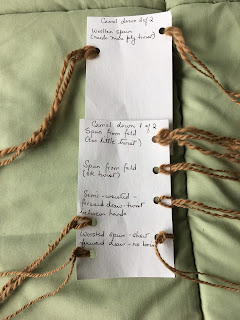 Camel down 2 of 2
Woollen spun
(needs more ply twist)
Camel down 1 of 2
Spun from fold
(too little twist)
Spun from fold
(ok twist)
Semi-worsted -
forward draw - twist
between hands
Worsted spun - short
forward draw - no twist